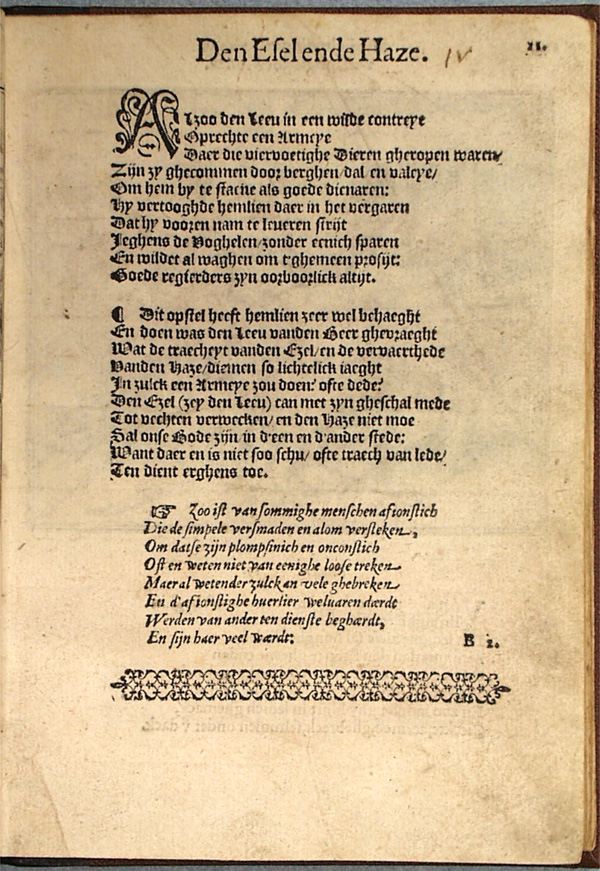 Den Esel ende Haze. IV 11.
Alzoo den Leeu in een wilde contreye
Oprechte een Armeye
Daer die viervoetighe Dieren gheropen waren/
Zijn zy ghecommen door berghen/ dal en valeye/
Om hem by te stacne als goede dienaren:
Hy vertooghde hemlien daer in het vergaren
Dat hy vooren nam te leueren strijt
Jeghens de Voghelen/ zonder eenich sparen
En wildet al waghen om t'ghemeen profijt:
Goede regierders zyn oorboorlick altijt.
¶ Dit opstel heeft hemlien zeer wel behaeght
En doen was den Leeu vanden Beer ghevraeght
Wat de traecheyt vanden Ezel/ en de vervaerthede
Vanden Haze/ diemen so lichtelick iaeght
In zulck een Armeye zou doen? ofte dede?
Den Ezel (zey den Leeu) can met zyn gheschal mede
Tot vechten verwecken/ en den Haze niet moe
Sal onse Bode zijn in d'een en d'ander stede:
Want daer en is niet soo schu/ ofte traech van lede/
Ten dient erghens toe.
☞ Zoo ist van sommighe menschen afionstich
Die de simpele versmaden en alom versteken,
Om datse zijn plompsinich en onconstich
Oft en weten niet van eenighe loose treken
Maer al wetender zulck an vele ghebreken
En d'afionstighe huerlier weluaren dærdt
Werden van ander ten dienste beghærdt,
En sijn haer veel wærdt.
B 2.